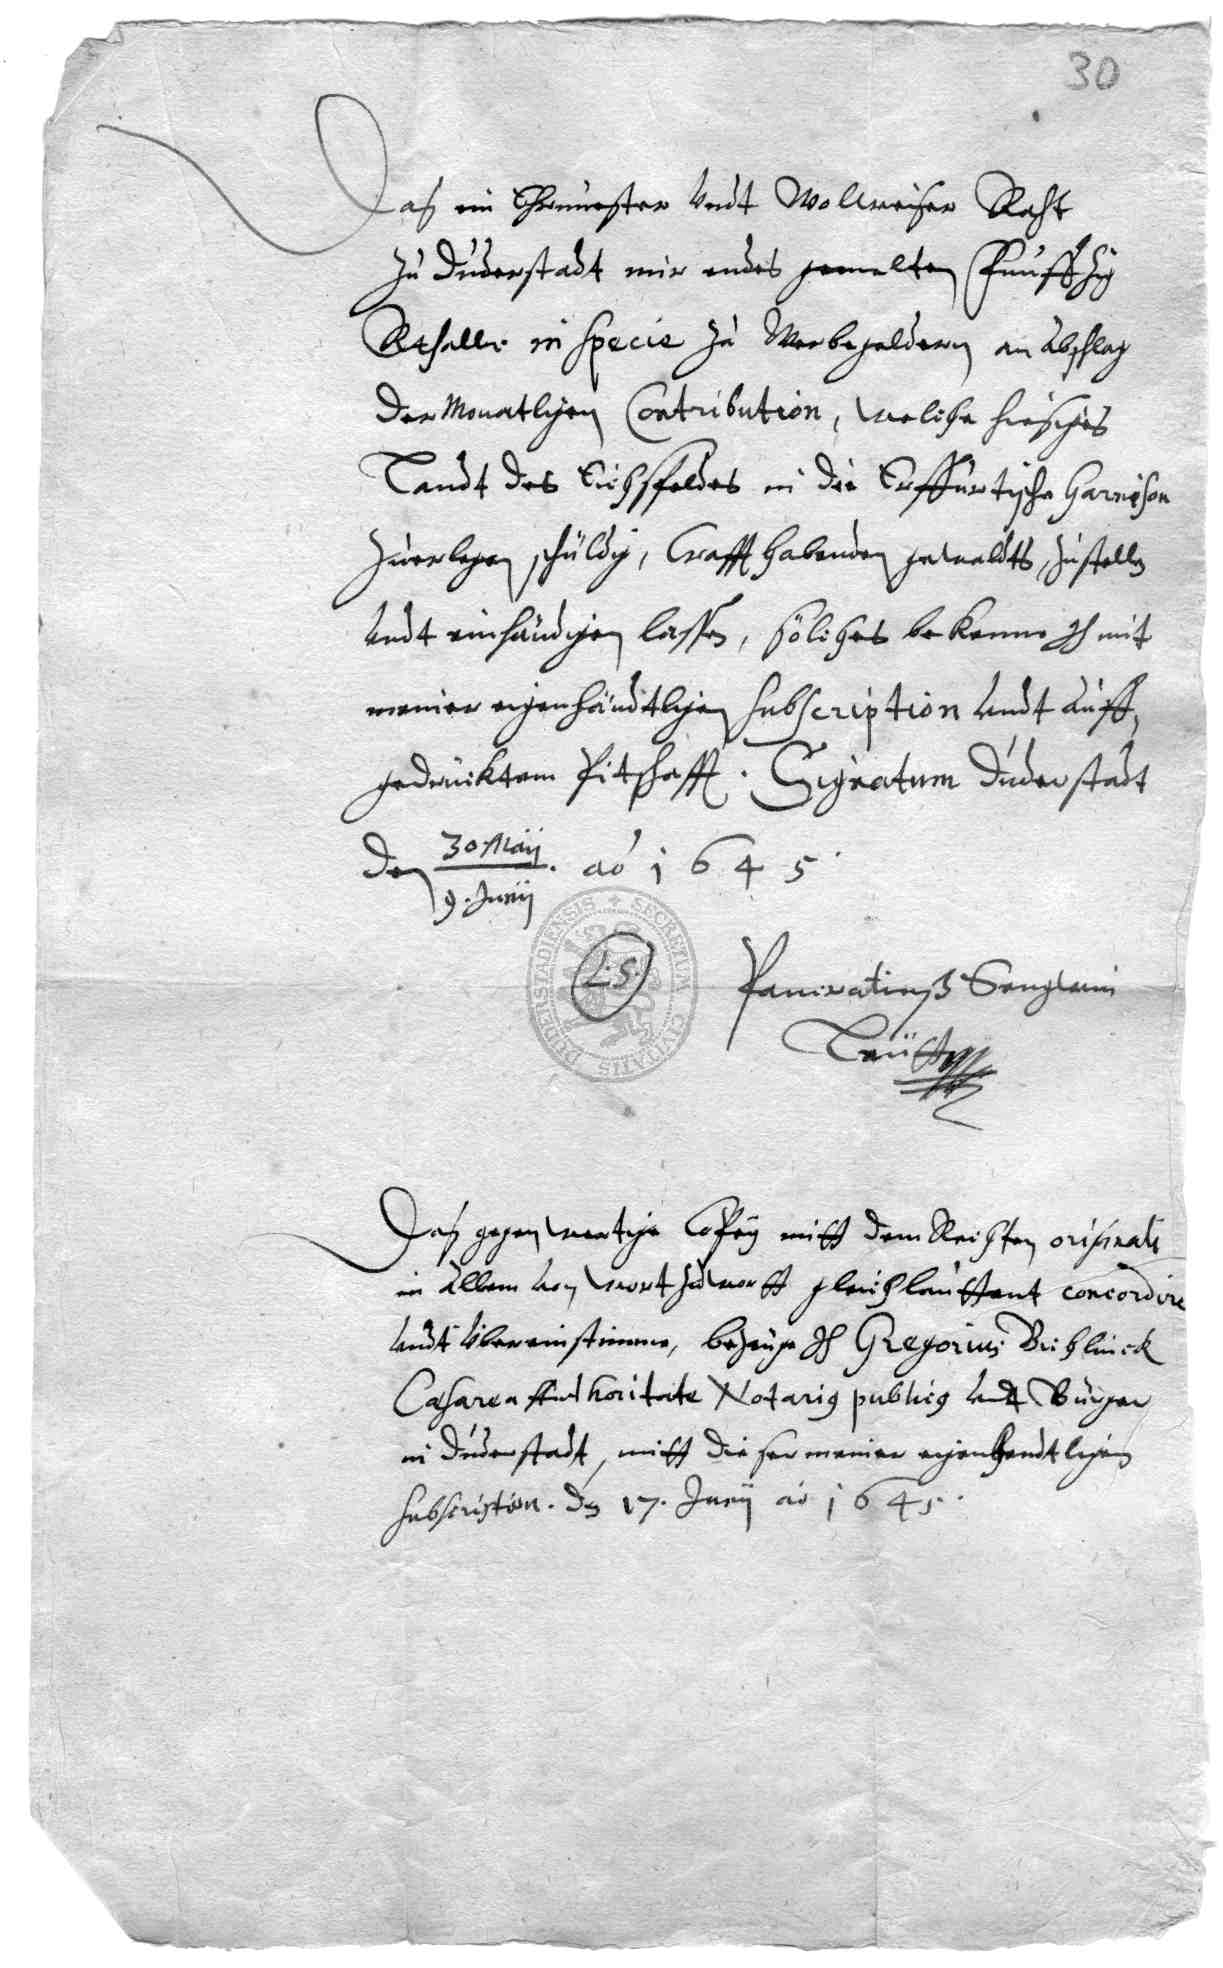 30
Das ein Ehrnuester vndt Wollweiser Raht
zu Duderstadt mir endes gemelten Funffzig
Rthaller in specie zu Werbegeldern an Abschlag
der Monatlichen Contribution, welche hiesiches
Landt des Eichsfeldes in die Erffurtische Garnison
zuerlegen schuldig, Crafft habenden gewaldts, zustellen
vndt einhändigen lassen, söliches bekenne ich mit
meiner eigenhändtlichen subscription vndt auff
gedrucktem Pitschafft. Signatum Duderstadt
den 30 Maij
9. Junij . ao 1645.
SECRETUM CIVITATIS DUDERSTADIENSIS
L.S.
Pancratius
Das gegenwertige Copey mitt dem Rechten originali
in Allem von wort zu wortt gleichlauttent concordire
vndt übereinstimme, bezeuge Ich Gregorius
Cæsarea Authoritate Notarius publicus vndt Bürger
in Duderstadt, mitt dieser meiner eigenhendtlichen
subscription. den 17. Junij ao 1645.